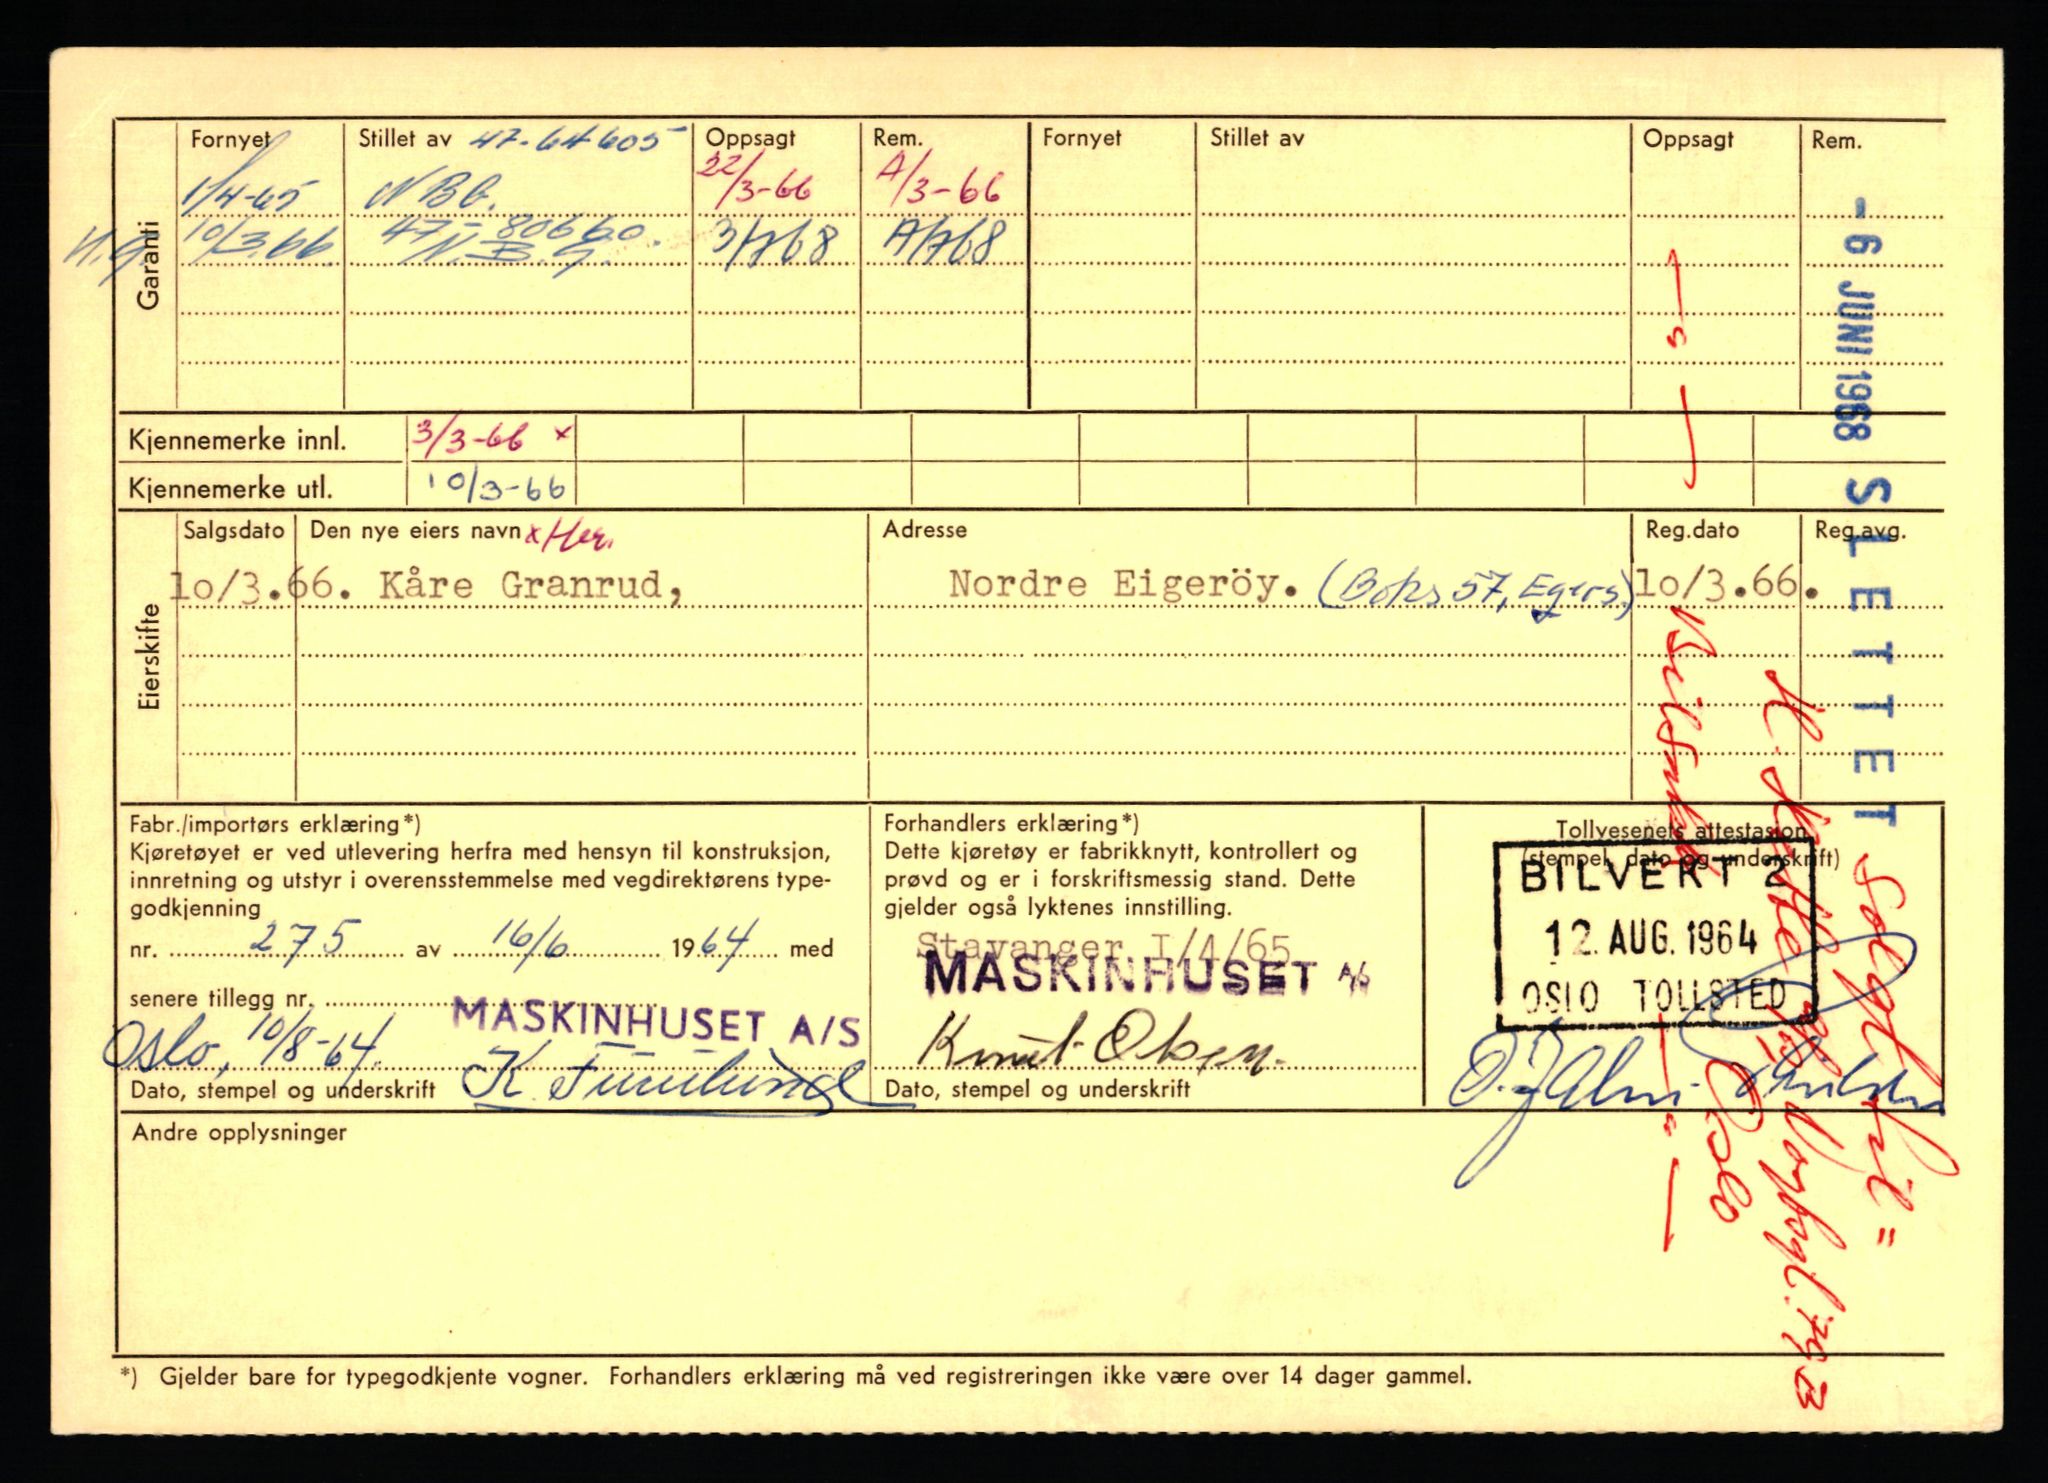 Garanti
Fornyet Stillet av 47-64605 Oppsagt Rem. Fornyet Stillet av Oppsagt Rem.
1/4-65 NBG. 22/3-66 A/3-66
N.G. 10/3.66. 47-80660. N.B.G. 3/768 A/768
- 6 JUNI 1968 SLETTET
Kjennemerke innl. 3/3-66 x
Kjennemerke utl. 10/3-66
Eierskifte
Salgsdato Den nye eiers navn x Her. Adresse Reg.dato Reg.avg.
1o/3.66. Kåre Granrud, Nordre Eigeröy. (Boks 57, Egers.) 1o/3.66.
Solgt til =
Oslo
Fabr./importørs erklæring*)
Kjøretøyet er ved utlevering herfra med hensyn til konstruksjon,
innretning og utstyr i overensstemmelse med vegdirektørens type-
godkjenning
nr. 275 av 16/6 1964 med
senere tillegg nr.
MASKINHUSET A/S
Oslo, 10/8-64.
Dato, stempel og underskrift
Forhandlers erklæring*)
Dette kjøretøy er fabrikknytt, kontrollert og
prøvd og er i forskriftsmessig stand. Dette
gjelder også lyktenes innstilling.
Stavanger I/4/65
MASKINHUSET A/S
Knut Olsen.
Dato, stempel og underskrift
Tollvesenets attestasjon
(stempel, dato og underskrift)
BILVEKT 2
12. AUG. 1964
OSLO TOLLSTED
Andre opplysninger
*) Gjelder bare for typegodkjente vogner. Forhandlers erklæring må ved registreringen ikke være over 14 dager gammel.